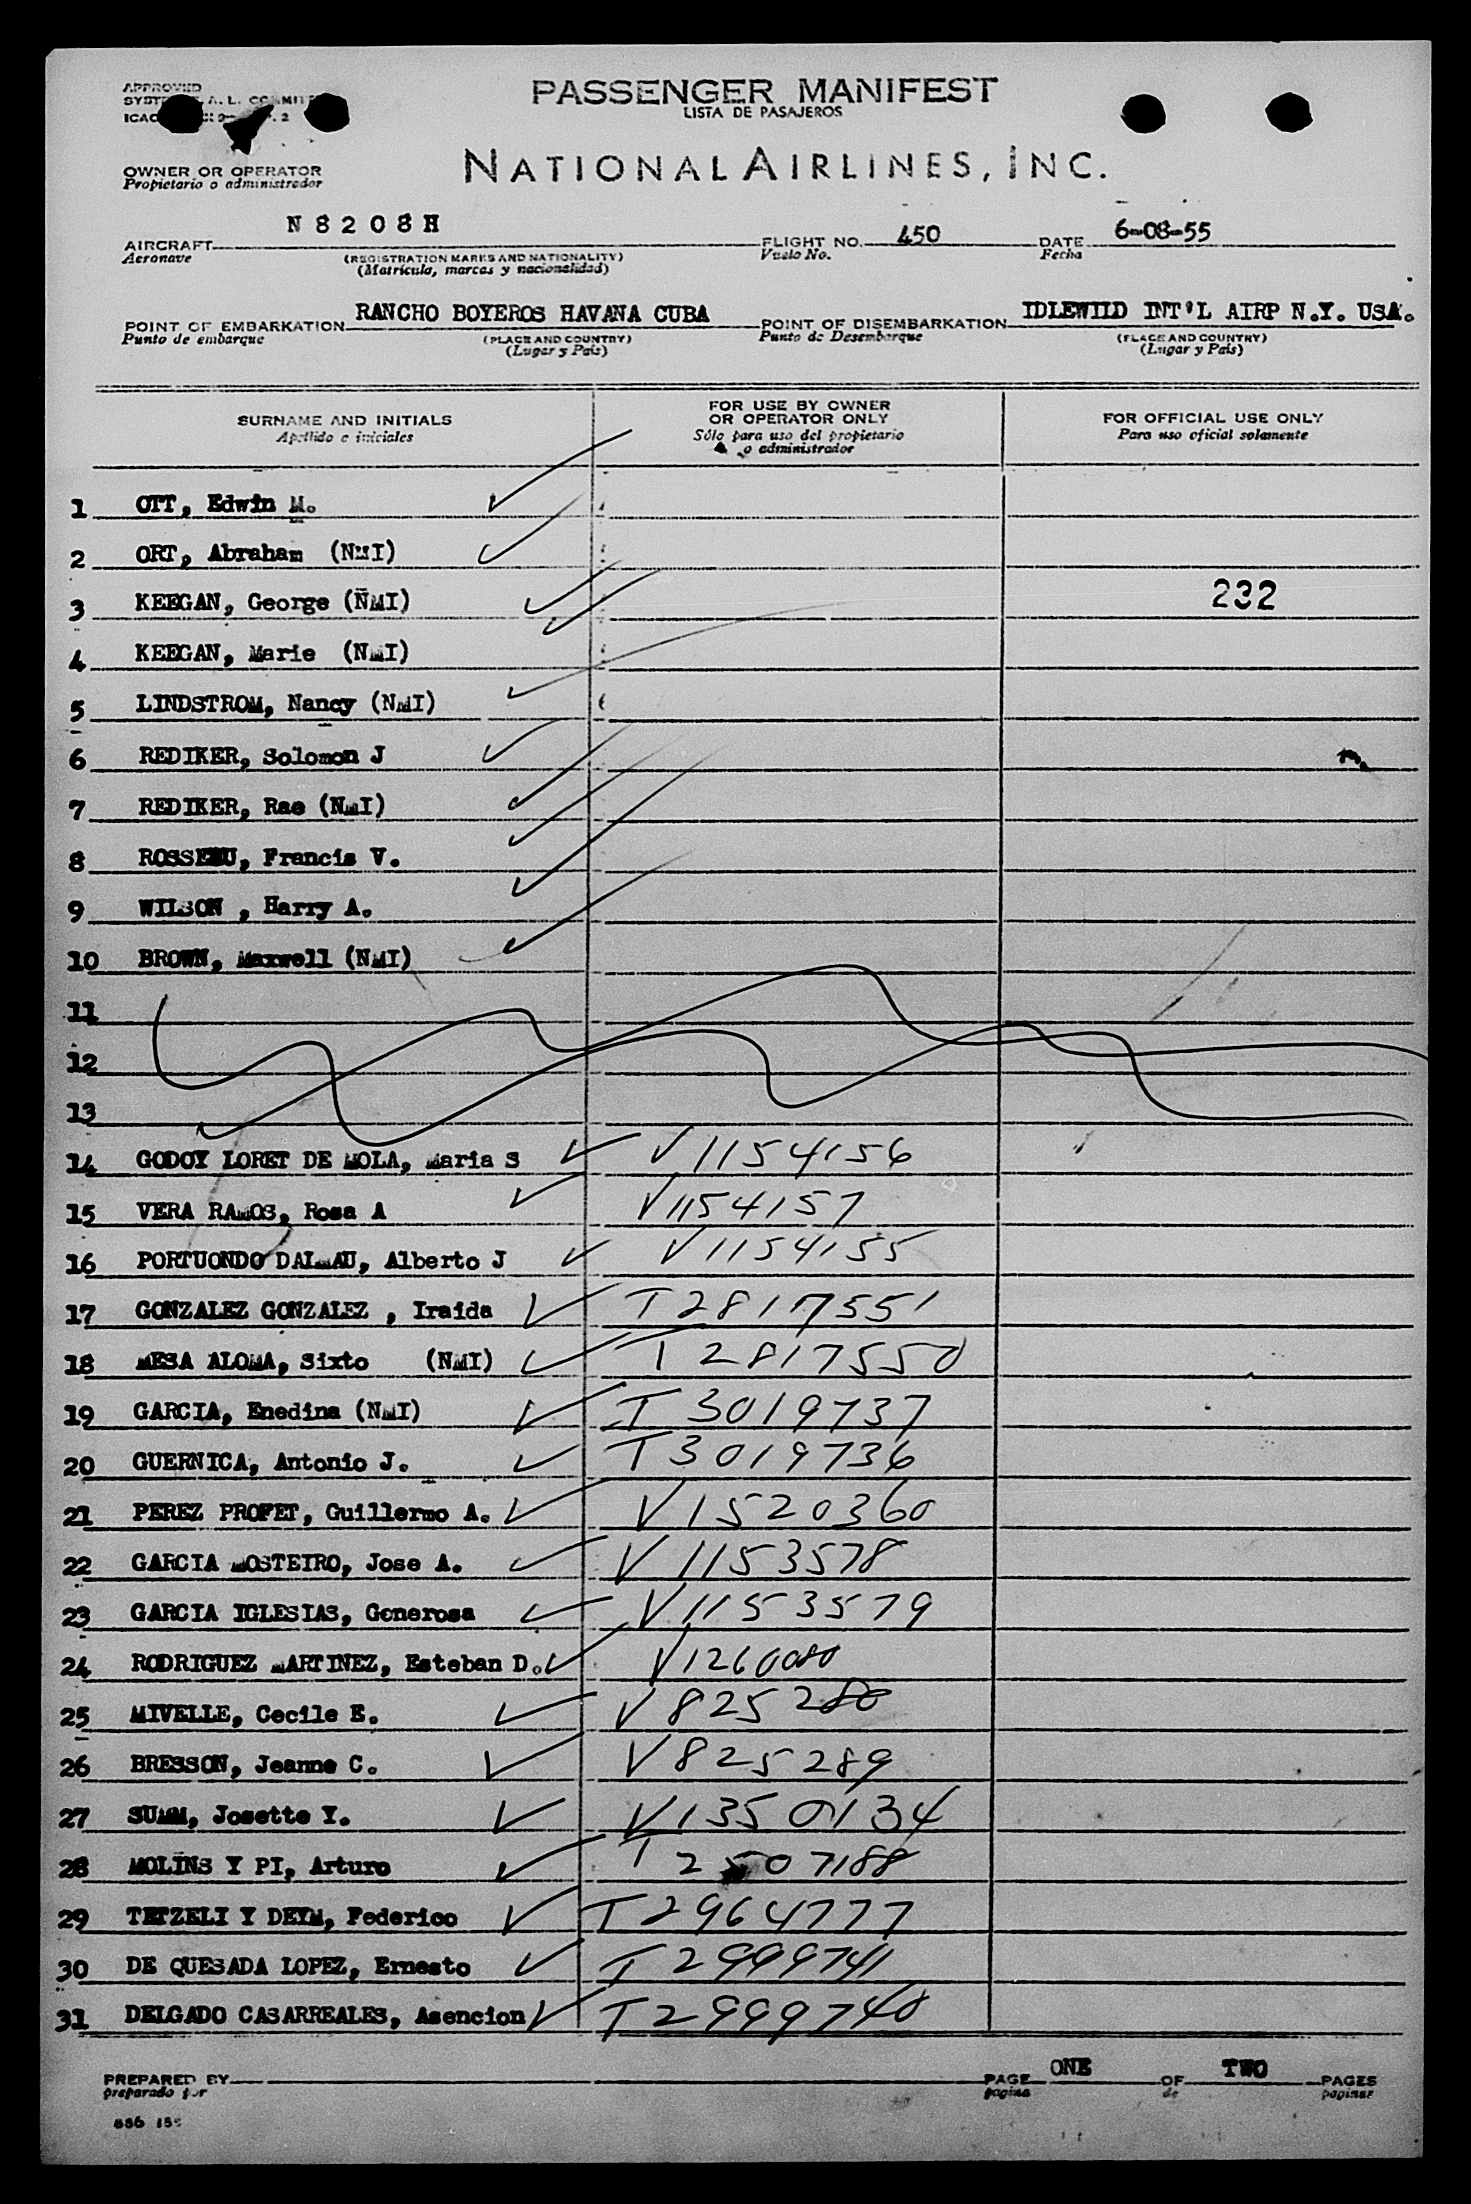 APPROVED
PASSENGER MANIFEST
LISTA DE PASAJEROS
NATIONAL AIRLINES, INC.
OWNER OR OPERATOR
Propietario o administrador
N8208H
450
6-08-55
AIRCRAFT FLIGHT NO. DATE
Aeronave (REGISTRATION MARKS AND NATIONALITY) Vuelo No. Fecha
(Matrícula, marcas y nacionalidad)
RANCHO BOYEROS HAVANA CUBA IDLEWILD INT'L AIRP N.Y. USA.
POINT OF EMBARKATION POINT OF DISEMBARKATION
Punto de embarque (PLACE AND COUNTRY) Punto de Desembarque (PLACE AND COUNTRY)
(Lugar y País) (Lugar y País)
SURNAME AND INITIALS FOR USE BY OWNER OR OPERATOR ONLY FOR OFFICIAL USE ONLY
Apellido e iniciales Sólo para uso del propietario o administrador Para uso oficial solamente
1 OTT, Edwin M.
2 ORT, Abraham (NMI)
3 KEEGAN, George (NMI) 232
4 KEEGAN, Marie (NMI)
5 LINDSTROM, Nancy (NMI)
6 REDIKER, Solomon J
7 REDIKER, Rae (NMI)
8 Francis V.
9 WILSON , Harry A.
10 BROWN, Maxwell (NMI)
11
12
13
14 GODOY LORET DE MOLA, Maria S V1154156
15 VERA RAMOS, Rosa A V1154157
16 PORTUONDO DALMAU, Alberto J V1154155
17 GONZALEZ GONZALEZ , Iraida T2817551
18 MESA ALOMA, Sixto (NMI) T2817550
19 GARCIA, Enedina (NMI) T3019737
20 GUERNICA, Antonio J. T3019736
21 PEREZ PROFET, Guillermo A. V1520360
22 GARCIA MOSTEIRO, Jose A. V1153578
23 GARCIA IGLESIAS, Generosa V1153579
24 RODRIGUEZ MARTINEZ, Esteban D.
25 MIVELLE, Cecile E.
26 BRESSON, Jeanne C. V825289
27 SUMM, Josette Y. V1350134
28 MOLINS Y PI, Arturo
29 TETZELI Y DEYM, Federico T2964777
30 DE QUESADA LOPEZ, Ernesto T2999741
31 DELGADO CASARREALES, Asencion T2999740
PREPARED BY PAGE ONE OF TWO PAGES
preparado por pagina de paginas